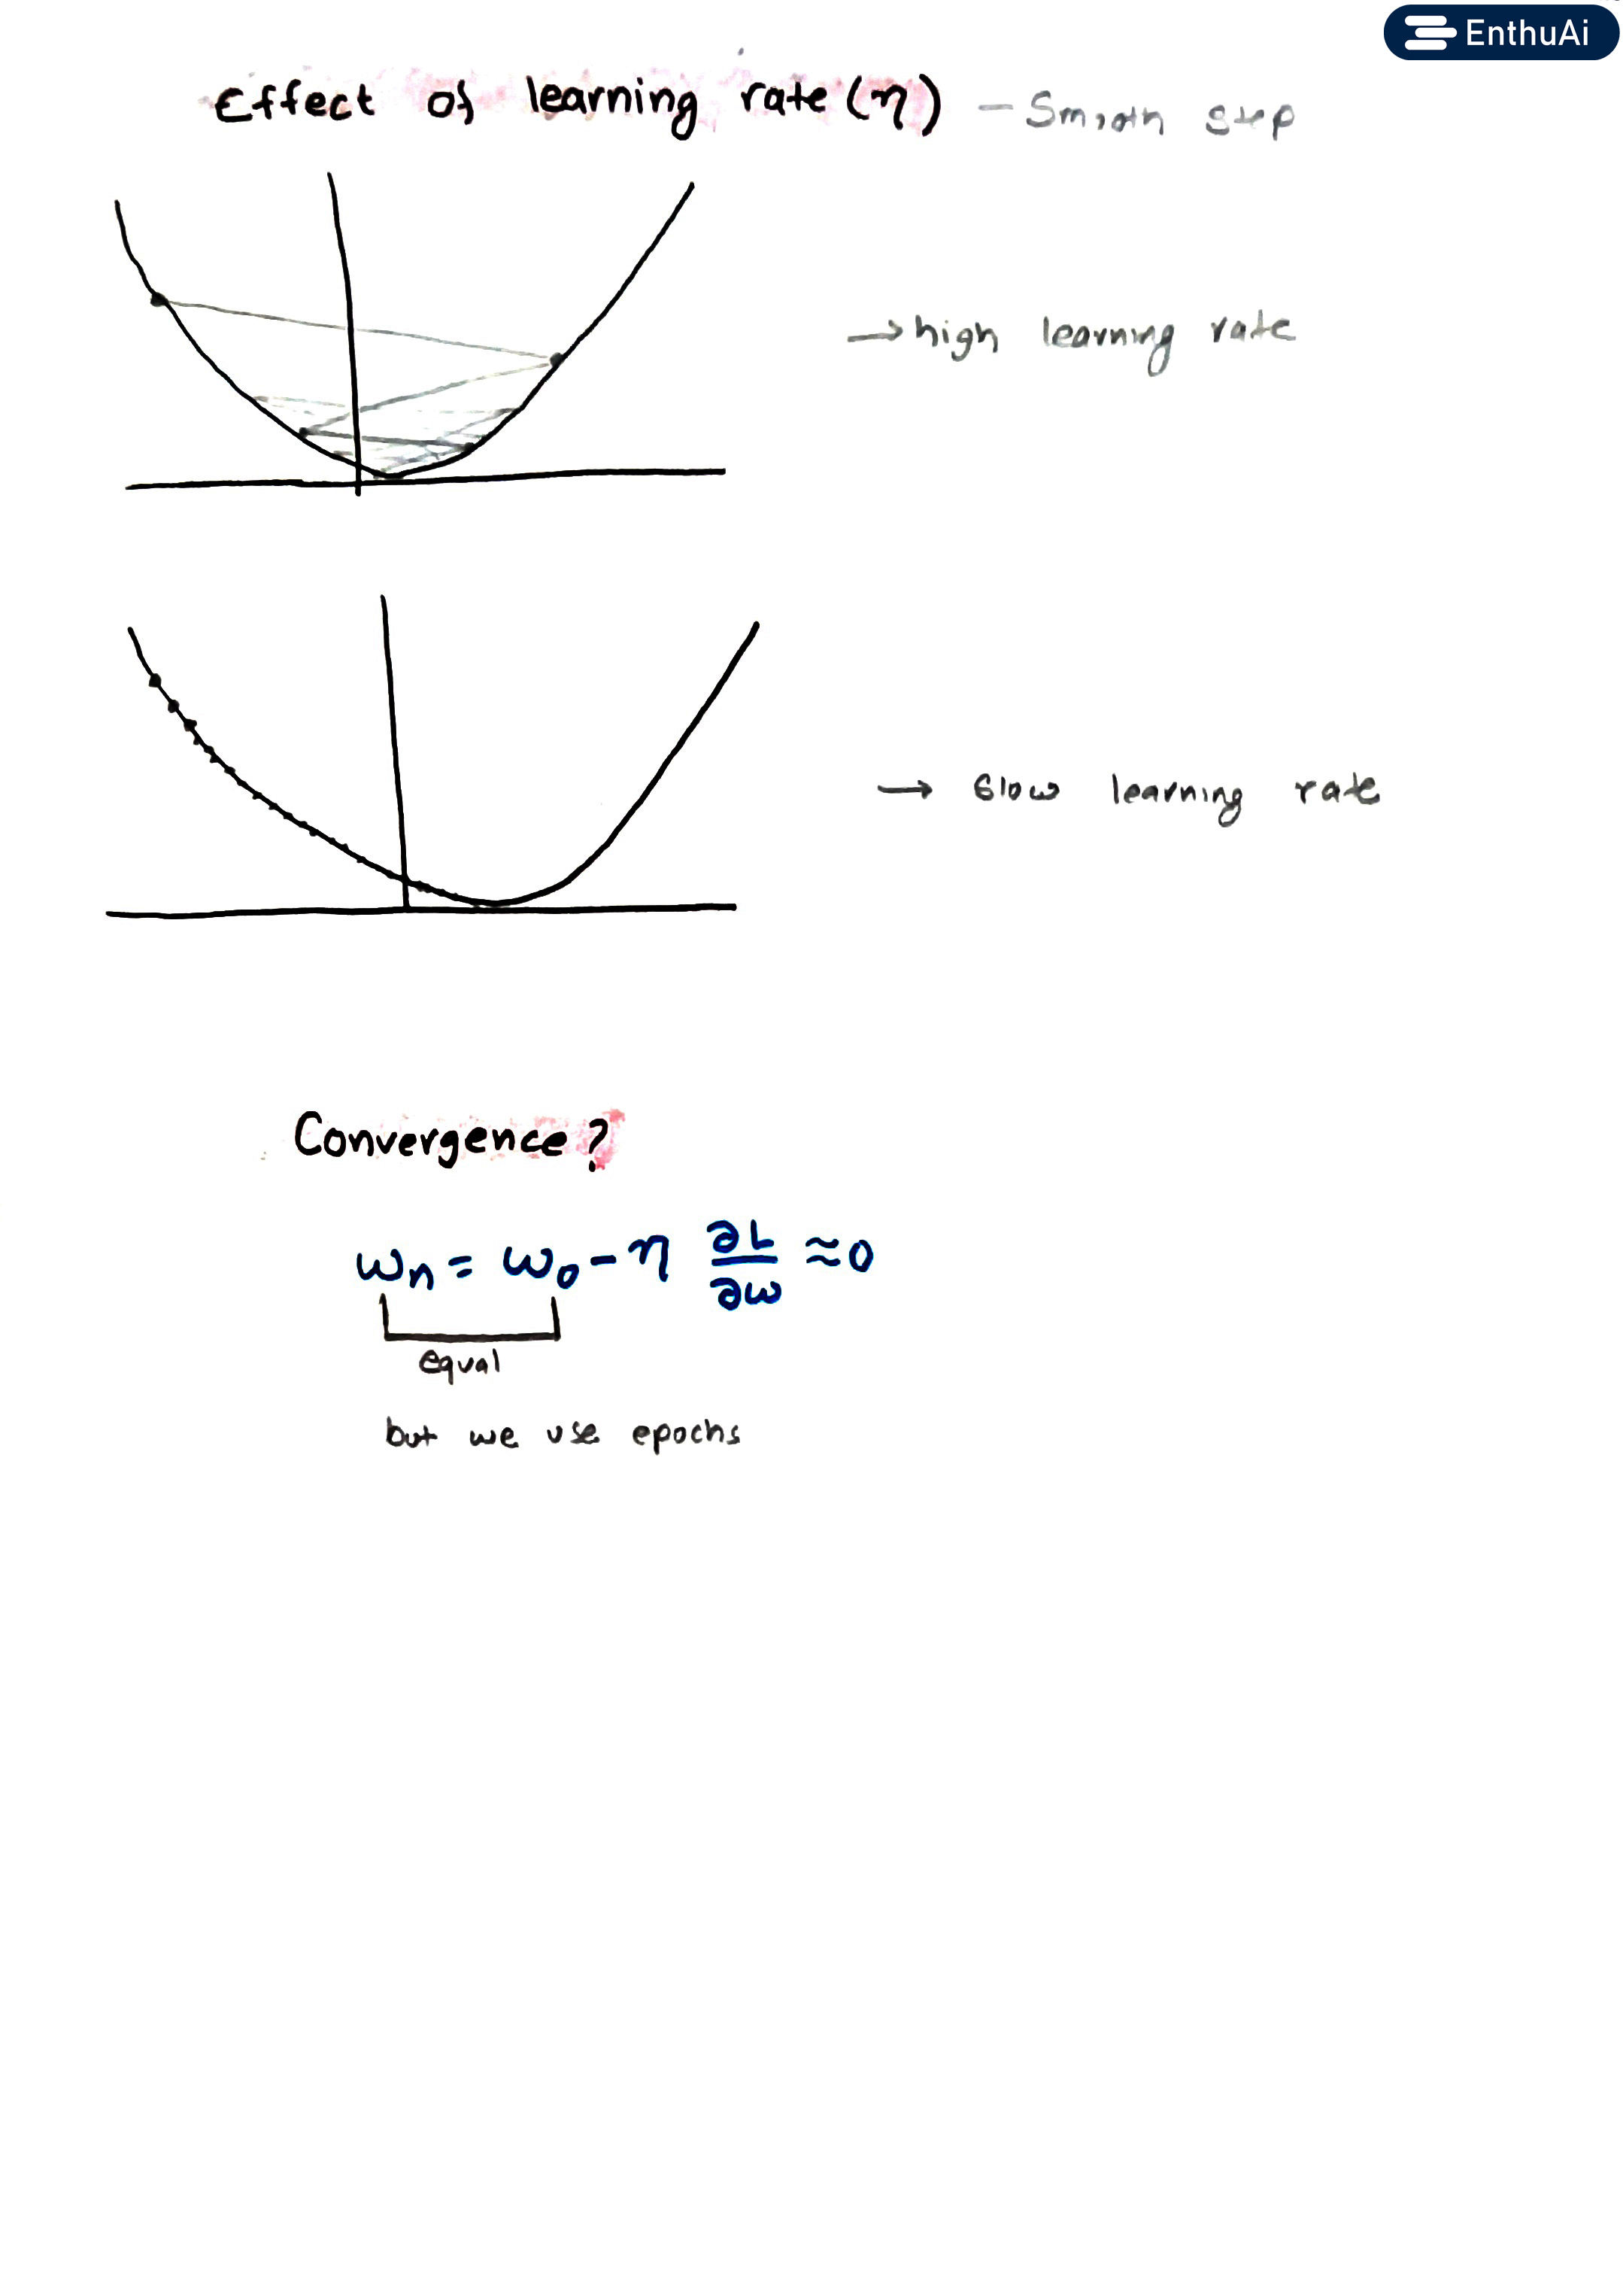 EnthuAi
Effect of learning rate (η) - Smooth step
→ high learning rate
→ slow learning rate
Convergence?
ωn = ωo - η ∂L/∂ω ≈ 0
equal
but we use epochs